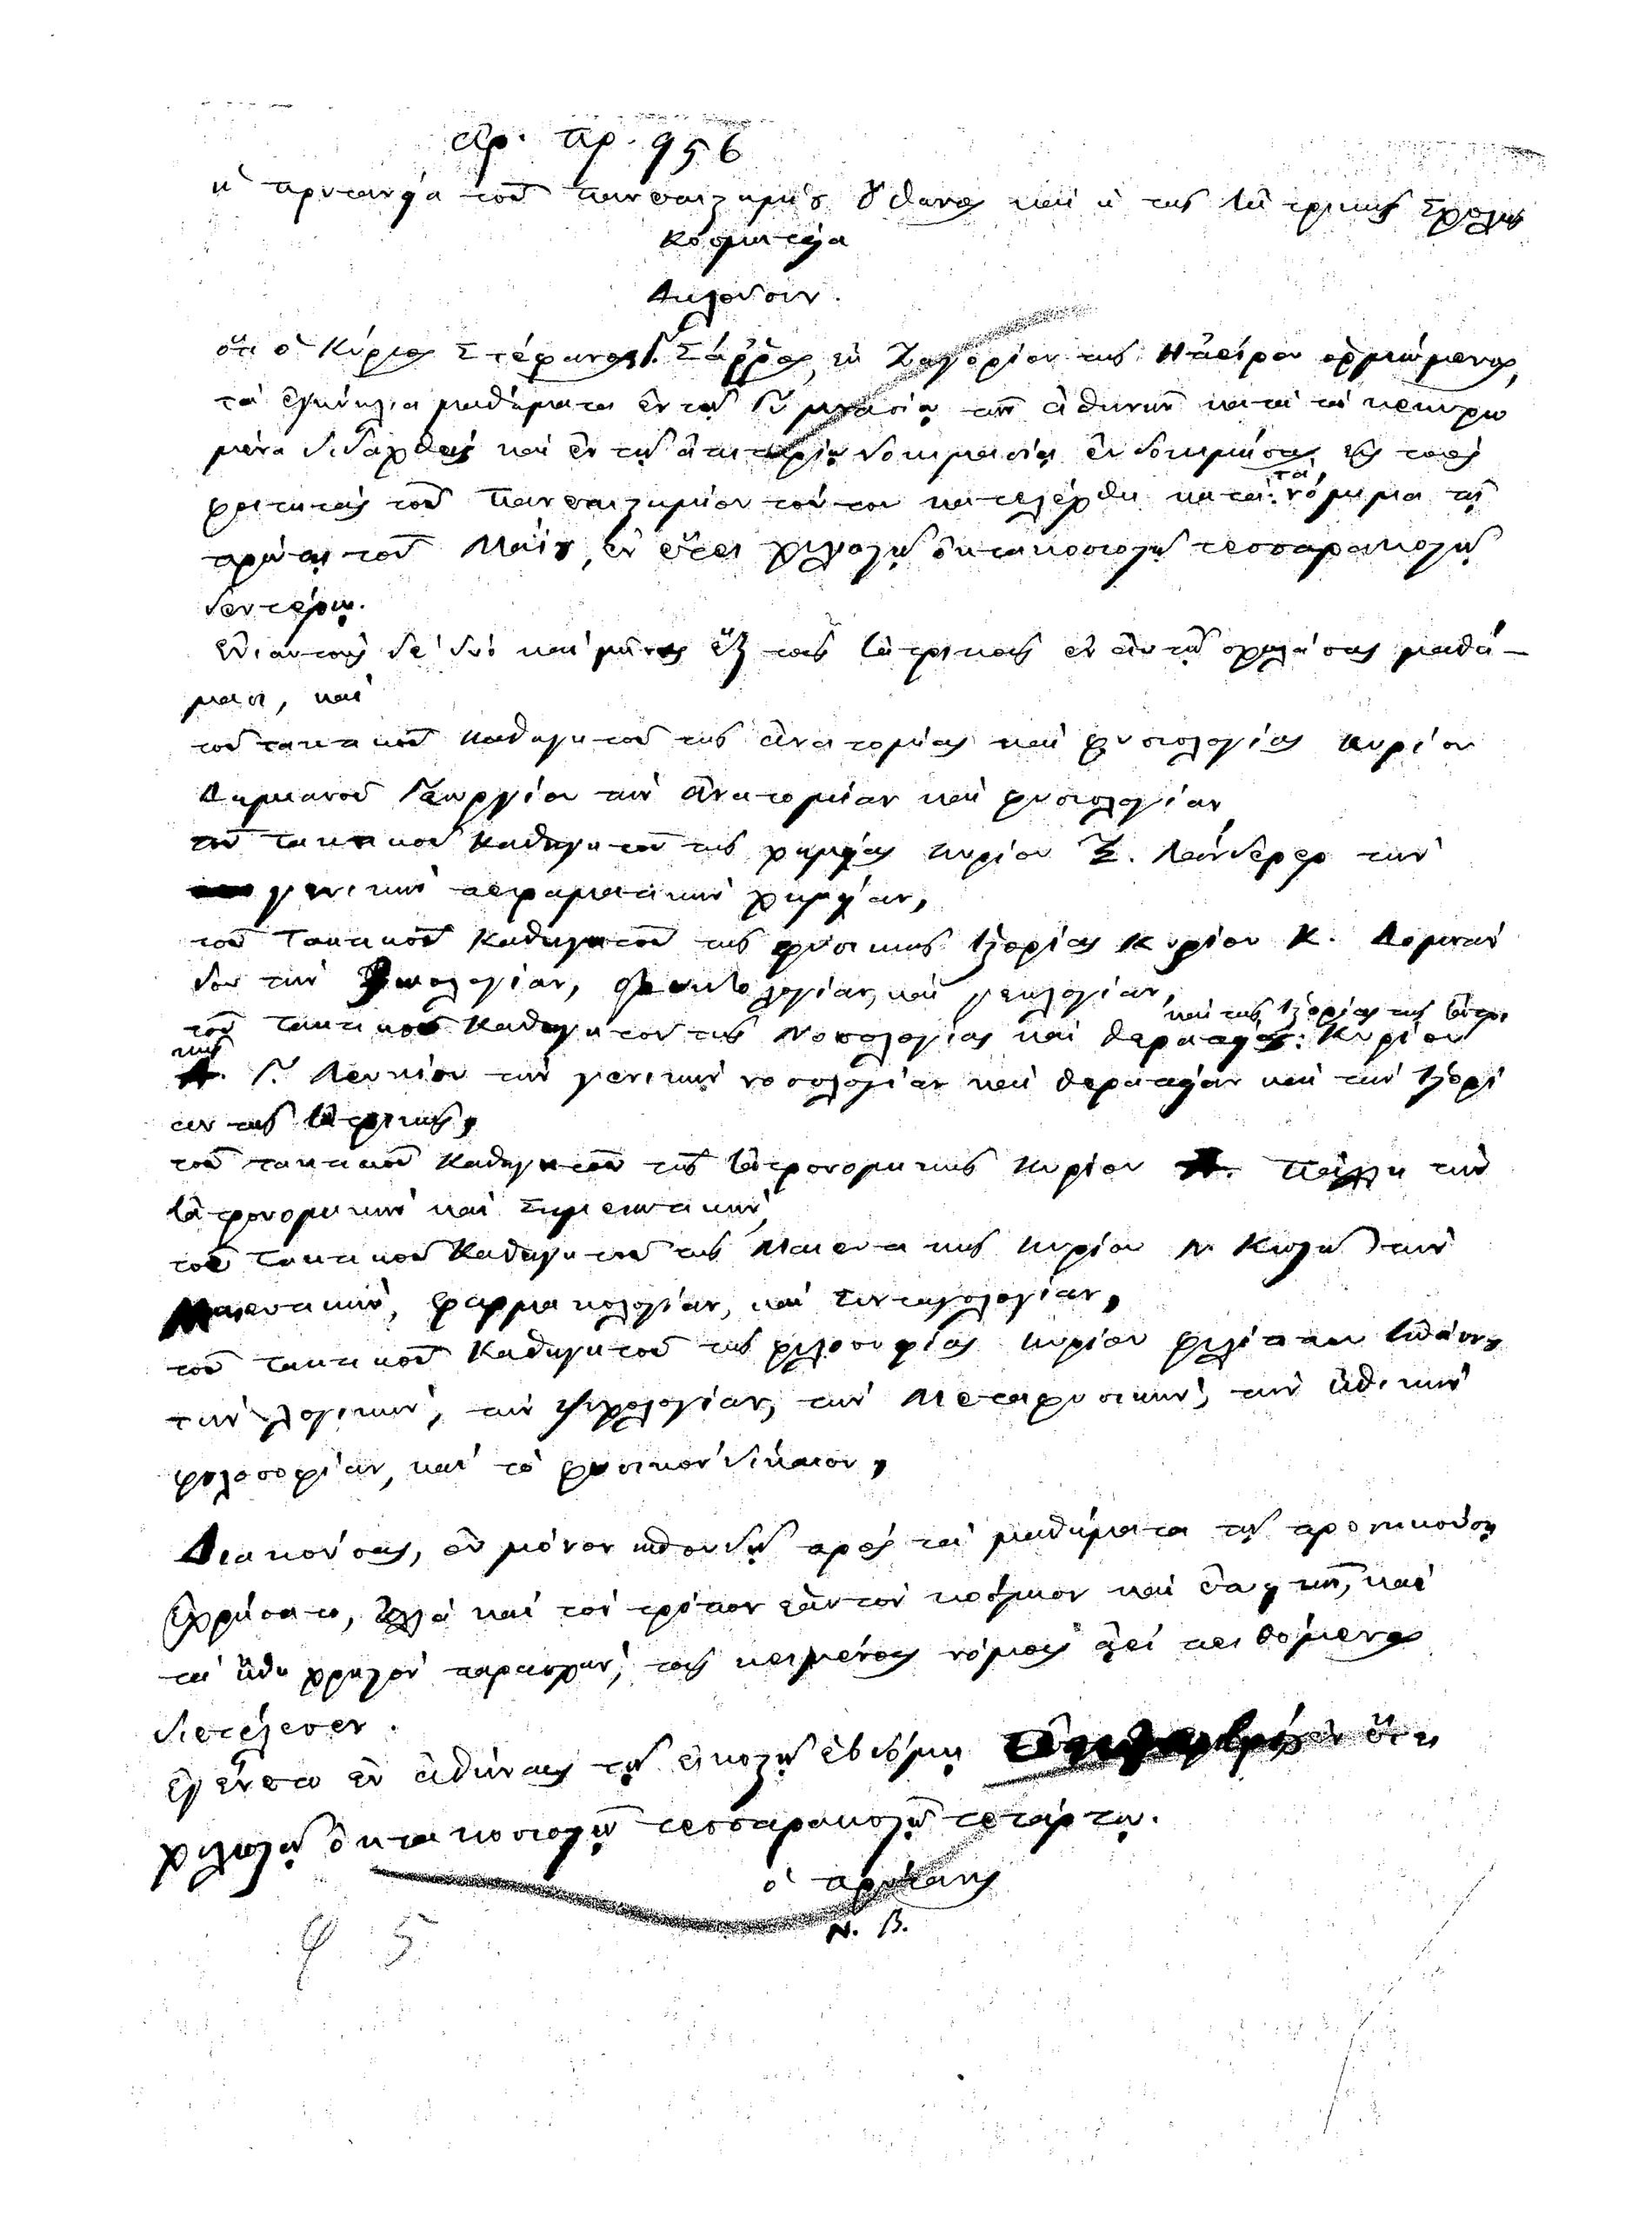 ἀρ. πρ. 956
ἡ πρυτανεία τοῦ Πανεπιστημίου Ὄθωνος καὶ ἡ τῆς Ἰατρικῆς Σχολῆς
Κοσμητεία
Δηλοῦσιν.
ὅτι ὁ Κύριος Στέφανος Γ. Σάῤῥος, ἐκ Ζαγορίου τῆς Ἠπείρου ὁρμώμενος,
τὰ ἐγκύκλια μαθήματα ἐν τῷ Γυμνασίῳ τῶν ἀθηνῶν κατὰ τὰ κεκυρω
μένα διδαχθεὶς καὶ ἐν τῇ ἀπιτηρίῳ δοκιμασίᾳ εὐδοκιμήσας εἰς τοὺς
φοιτητὰς τοῦ Πανεπιστημίου τούτου κατελέχθη κατὰ τὰ νόμιμα τῇ
πρώτῃ τοῦ Μαΐου, ἐν ἔτει χιλιοστῷ ὀκτακοσιοστῷ τεσσαρακοστῷ
δευτέρῳ.
Ἐνιαυτοὺς δὲ δύο καὶ μῆνας ἓξ τοῖς ἰατρικοῖς ἐν αὐτῷ σχολάσας μαθή-
μασι, καὶ
τοῦ τακτικοῦ καθηγητοῦ τῆς ἀνατομίας καὶ φυσιολογίας κυρίου
Δημιανοῦ Γεωργίου τὴν ἀνατομίαν καὶ φυσιολογίαν,
τοῦ τακτικοῦ Καθηγητοῦ τῆς χημείας κυρίου Ξ. Λάνδερερ τὴν
γενικὴν πειραματικὴν χημείαν,
τοῦ Τακτικοῦ Καθηγητοῦ τῆς φυσικῆς ἱστορίας Κυρίου Κ. Δομνάν
δου τὴν ζωολογίαν, καὶ γεωλογίαν,
τοῦ τακτικοῦ Καθηγητοῦ τῆς Νοσολογίας καὶ θεραπείας καὶ τῆς ἱστορίας τῆς ἰατρι
κῆς Κυρίου
Γ. Λευκίου τὴν γενικὴν νοσολογίαν καὶ θεραπείαν καὶ τὴν ἱστορί
αν τῆς ἰατρικῆς,
τοῦ τακτικοῦ Καθηγητοῦ τῆς ἰατρονομικῆς κυρίου Πάλλη τὴν
ἰατρονομικὴν καὶ Σημειωτικὴν,
τοῦ Τακτικοῦ Καθηγητοῦ τῆς Μαιευτικῆς κυρίου Ν. Κωστῆ τὴν
Μαιευτικὴν, φαρμακολογίαν, καὶ Συνταγολογίαν,
τοῦ τακτικοῦ Καθηγητοῦ τῆς φιλοσοφίας κυρίου φιλίππου Ἰωάννου
τὴν λογικὴν, τὴν ψυχολογίαν, τὴν Μεταφυσικὴν, τὴν ἠθικὴν
φιλοσοφίαν, καὶ τὸ φυσικὸν δίκαιον,
Διακούσας, οὐ μόνον σπουδῇ πρὸς τὰ μαθήματα τῇ προσηκούσῃ
ἐχρήσατο, ἀλλὰ καὶ τὸν τρόπον ἑαυτὸν κόσμιον καὶ ἐπιεικῆ, καὶ
τὰ ἤθη χρηστὸν παρασχὼν, τοῖς κειμένοις νόμοις ἀεὶ πειθόμενος
διετέλεσεν.
Ἐγένετο ἐν ἀθήναις τῇ εἰκοστῇ ἑβδόμῃ ἐν ἔτει
χιλιοστῷ ὀκτακοσιοστῷ τεσσαρακοστῷ τετάρτῳ.
ὁ πρύτανης
Ν. Β.